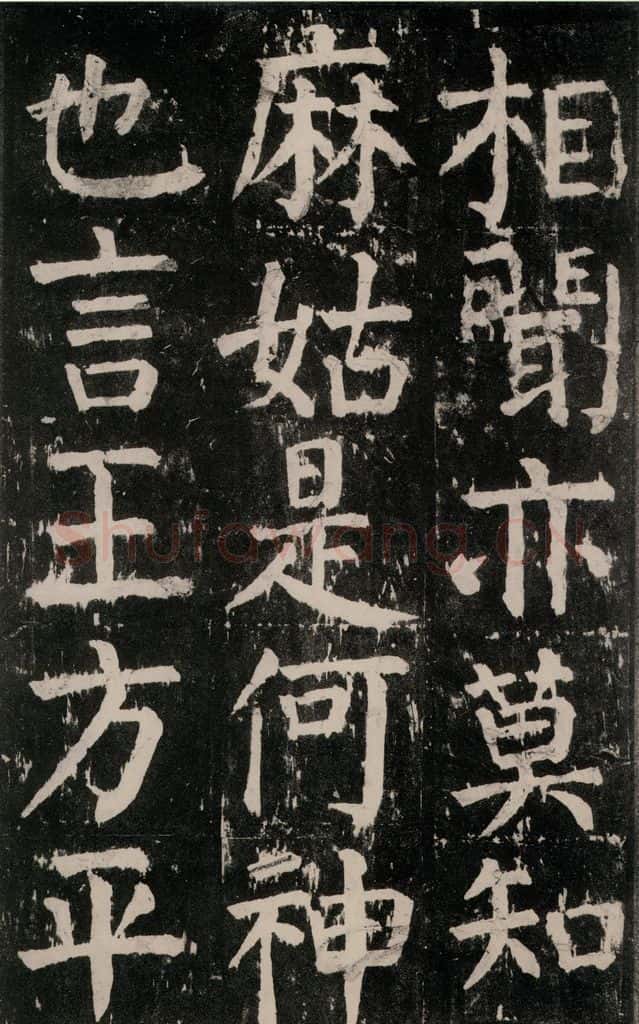 相聞亦莫知
麻姑是何神
也言王方平
Shufawang.CN